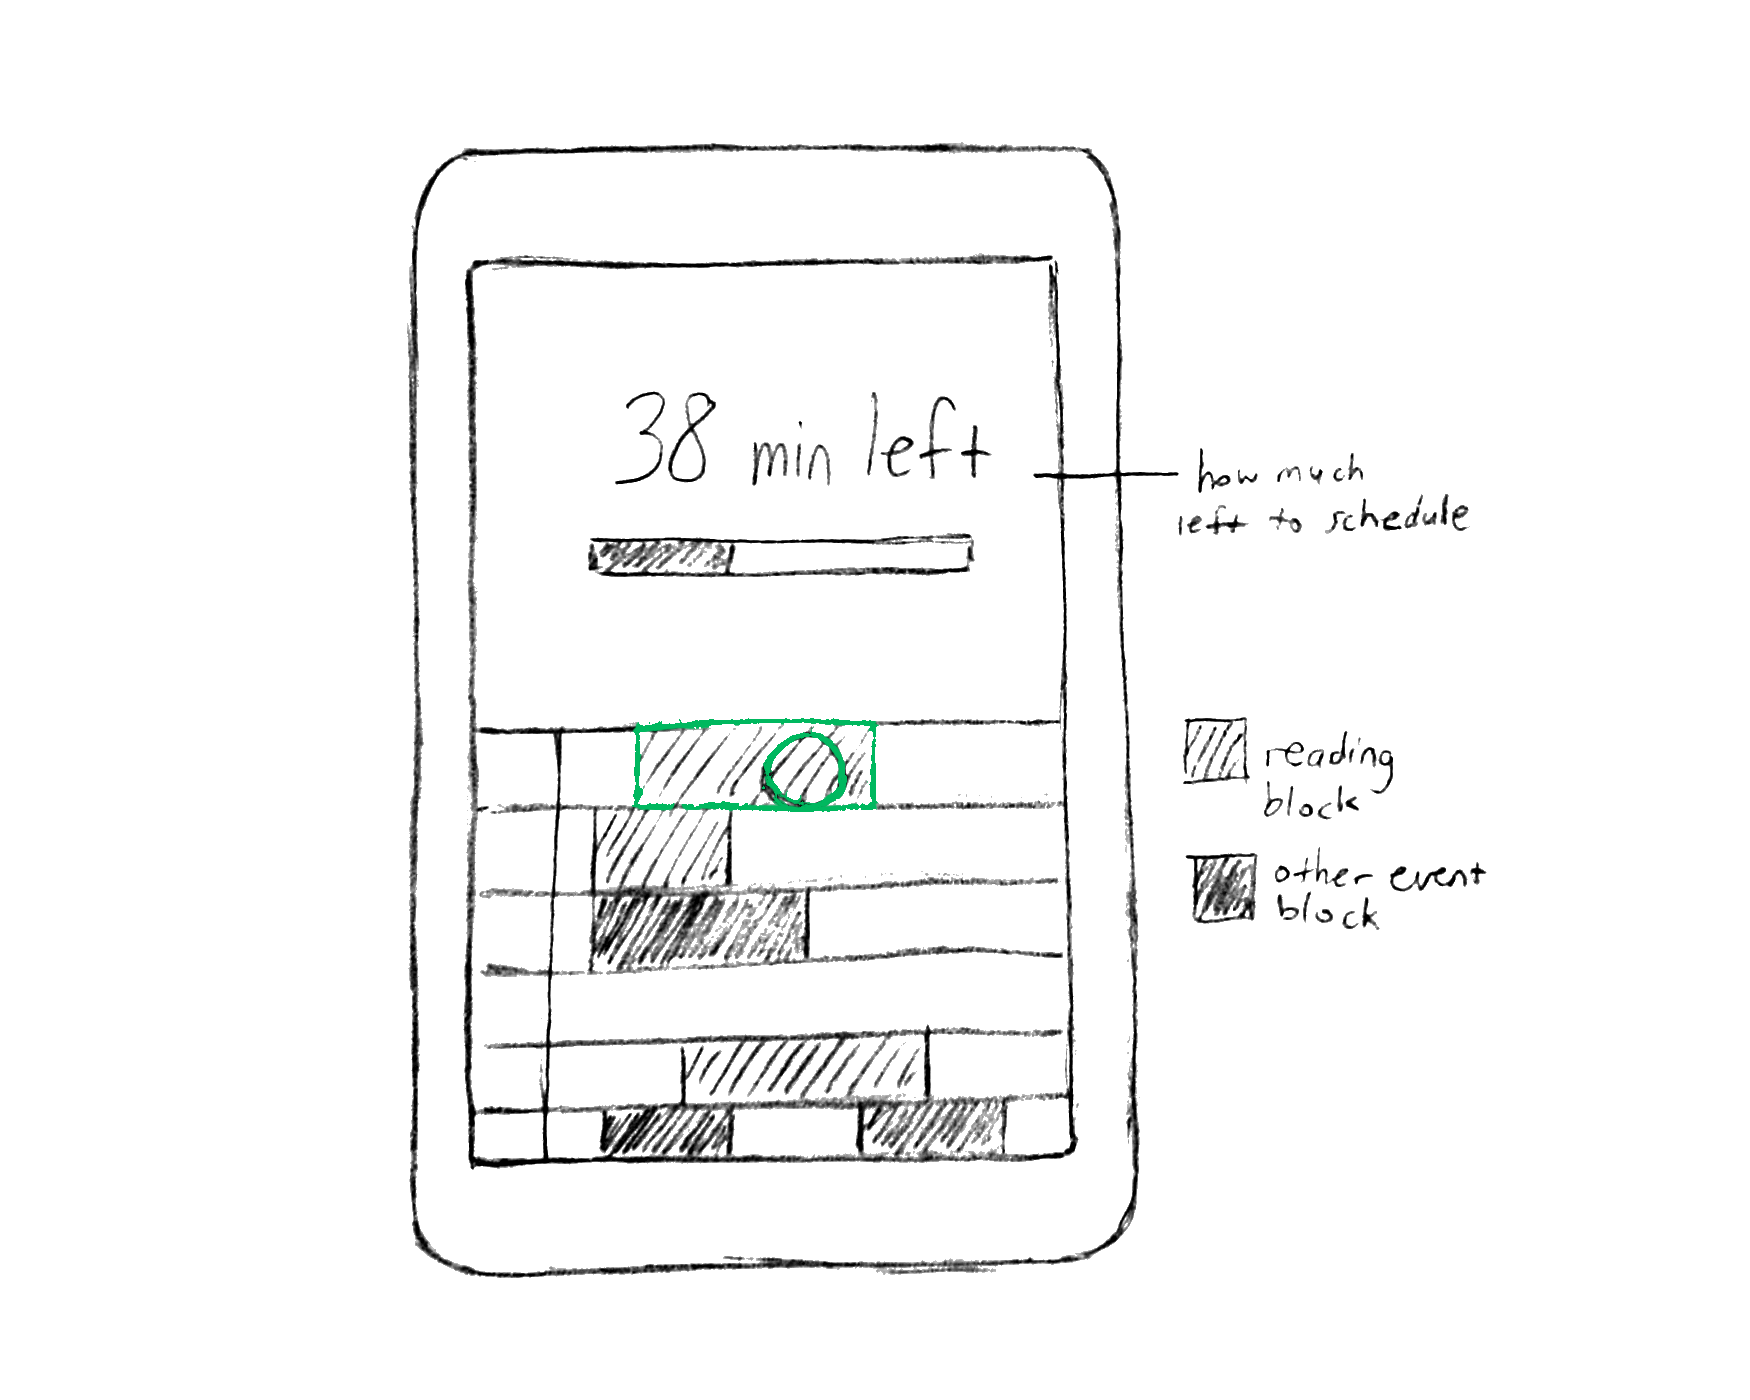 38 min left
how much
left to schedule
reading
block
other event
block